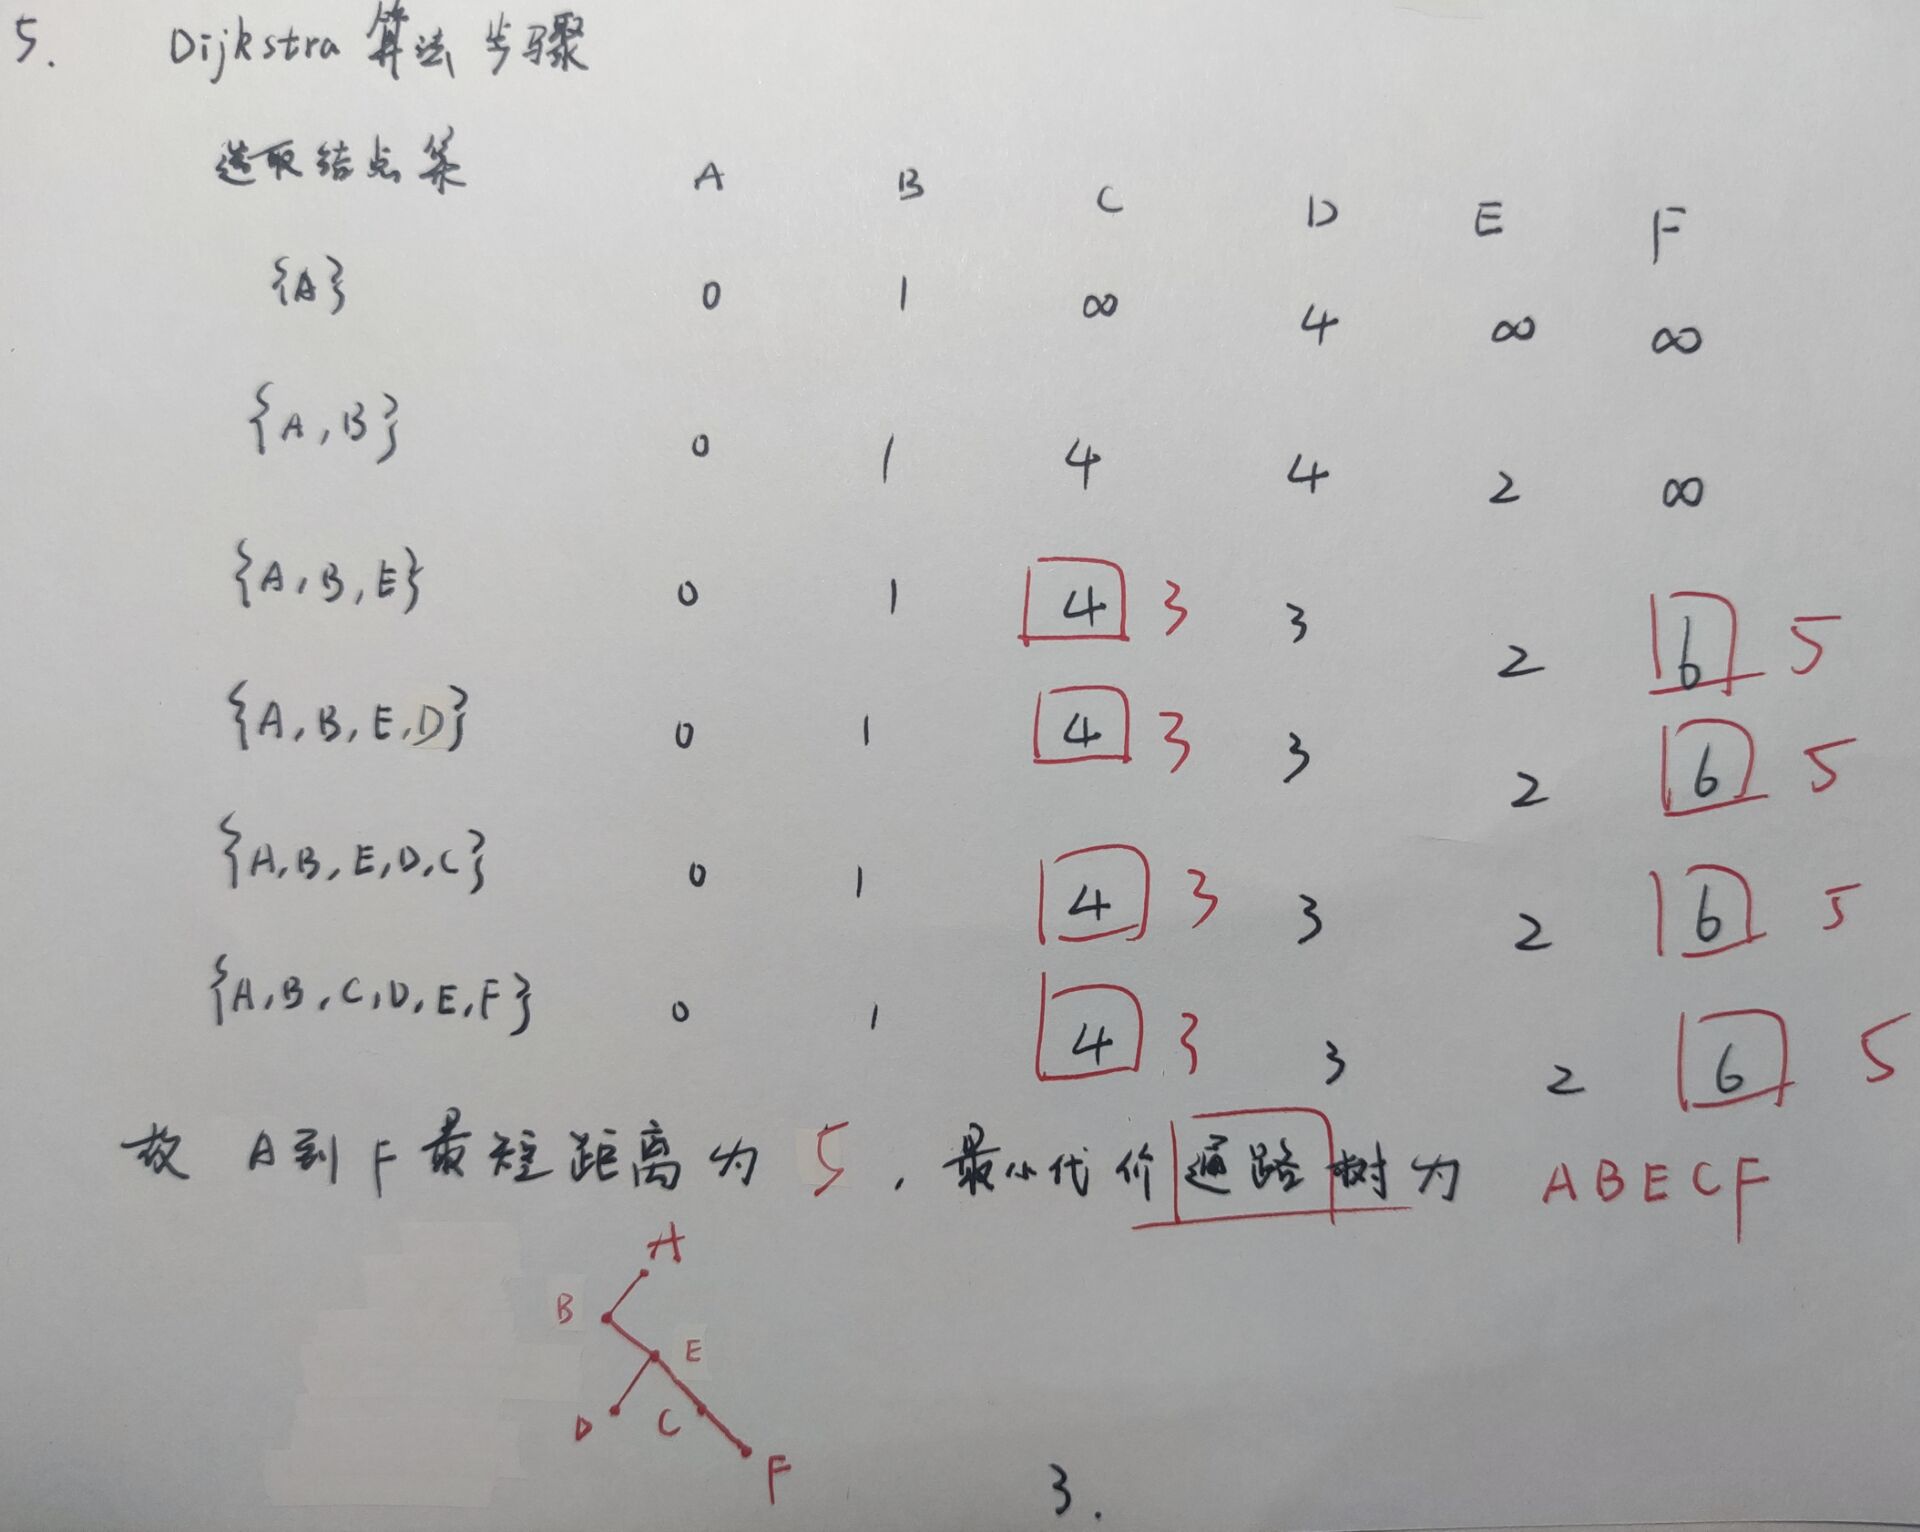 5. Dijkstra 算法步骤
选取结点集 A B C D E F
{A} 0 1 ∞ 4 ∞ ∞
{A,B} 0 1 4 4 2 ∞
{A,B,E} 0 1 4 3 3 2 6 5
{A,B,E,D} 0 1 4 3 3 2 6 5
{A,B,E,D,C} 0 1 4 3 3 2 6 5
{A,B,C,D,E,F} 0 1 4 3 3 2 6 5
故 A到F最短距离为5，最小代价通路树为 ABECF
A
B
E
D C
F
3.